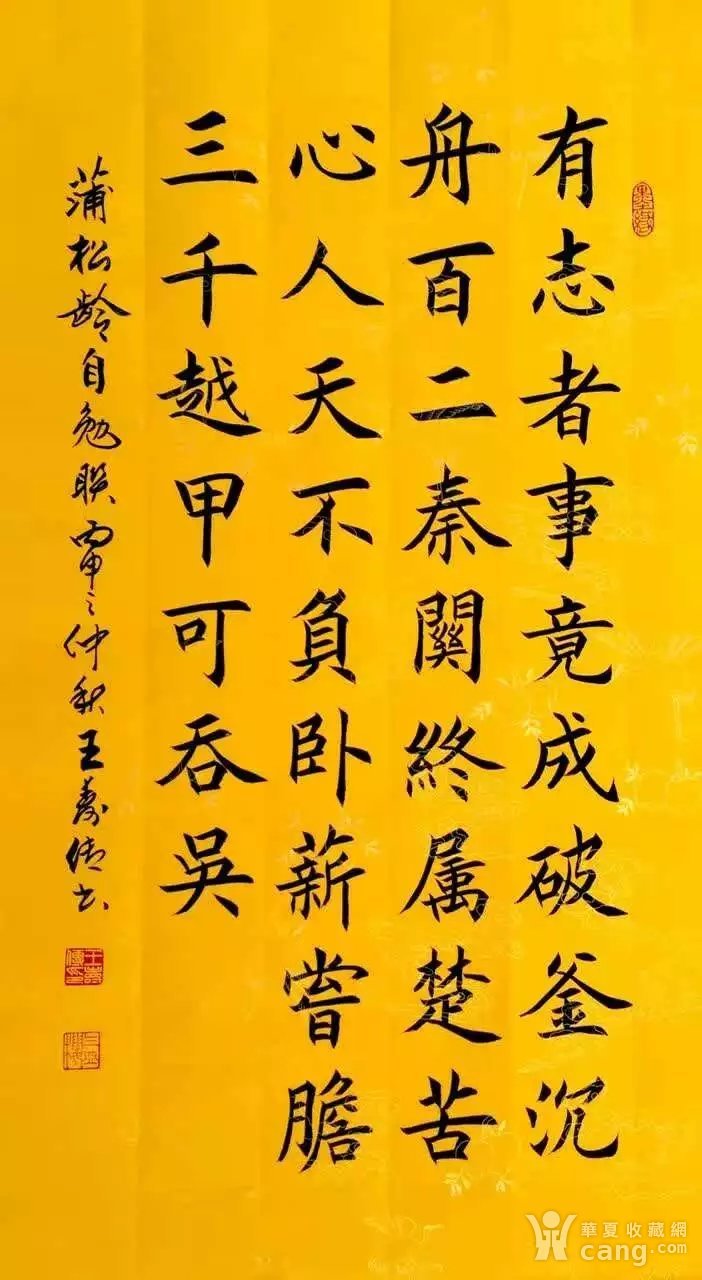 有志者事竟成破釜沉
舟百二秦關終属楚苦
心人天不負卧薪嘗膽
三千越甲可吞吳
蒲松龄自勉联丙申之仲秋王寿书
華夏收藏網
cang.com